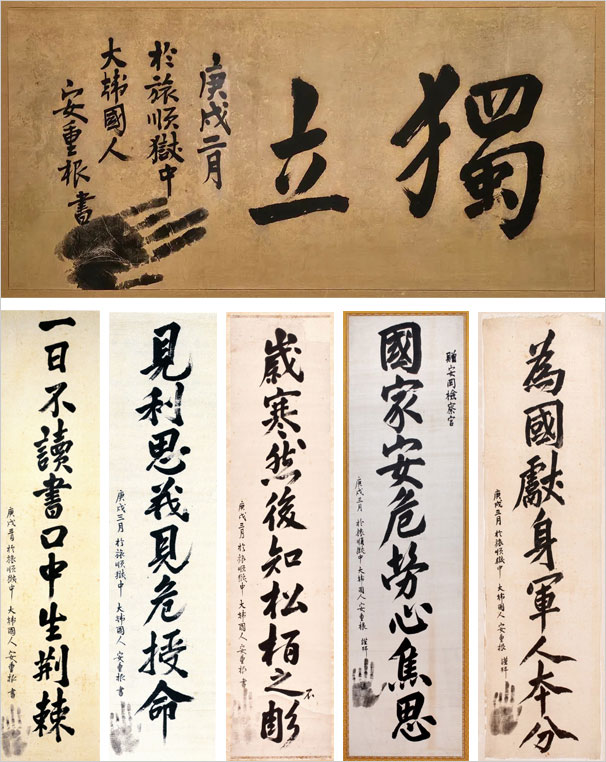 獨立
庚戌二月
於旅順獄中
大韓國人
安重根 書
為國獻身軍人本分
庚戌三月 於旅順獄中 大韓國人 安重根 謹拜
贈安岡檢察官
國家安危勞心焦思
庚戌三月 於旅順獄中 大韓國人 安重根 謹拜
歲寒然後知松栢之不彫
庚戌三月 於旅順獄中 大韓國人 安重根 書
見利思義見危授命
庚戌三月 於旅順獄中 大韓國人 安重根 書
一日不讀書口中生荊棘
庚戌三月 於旅順獄中 大韓國人 安重根 書